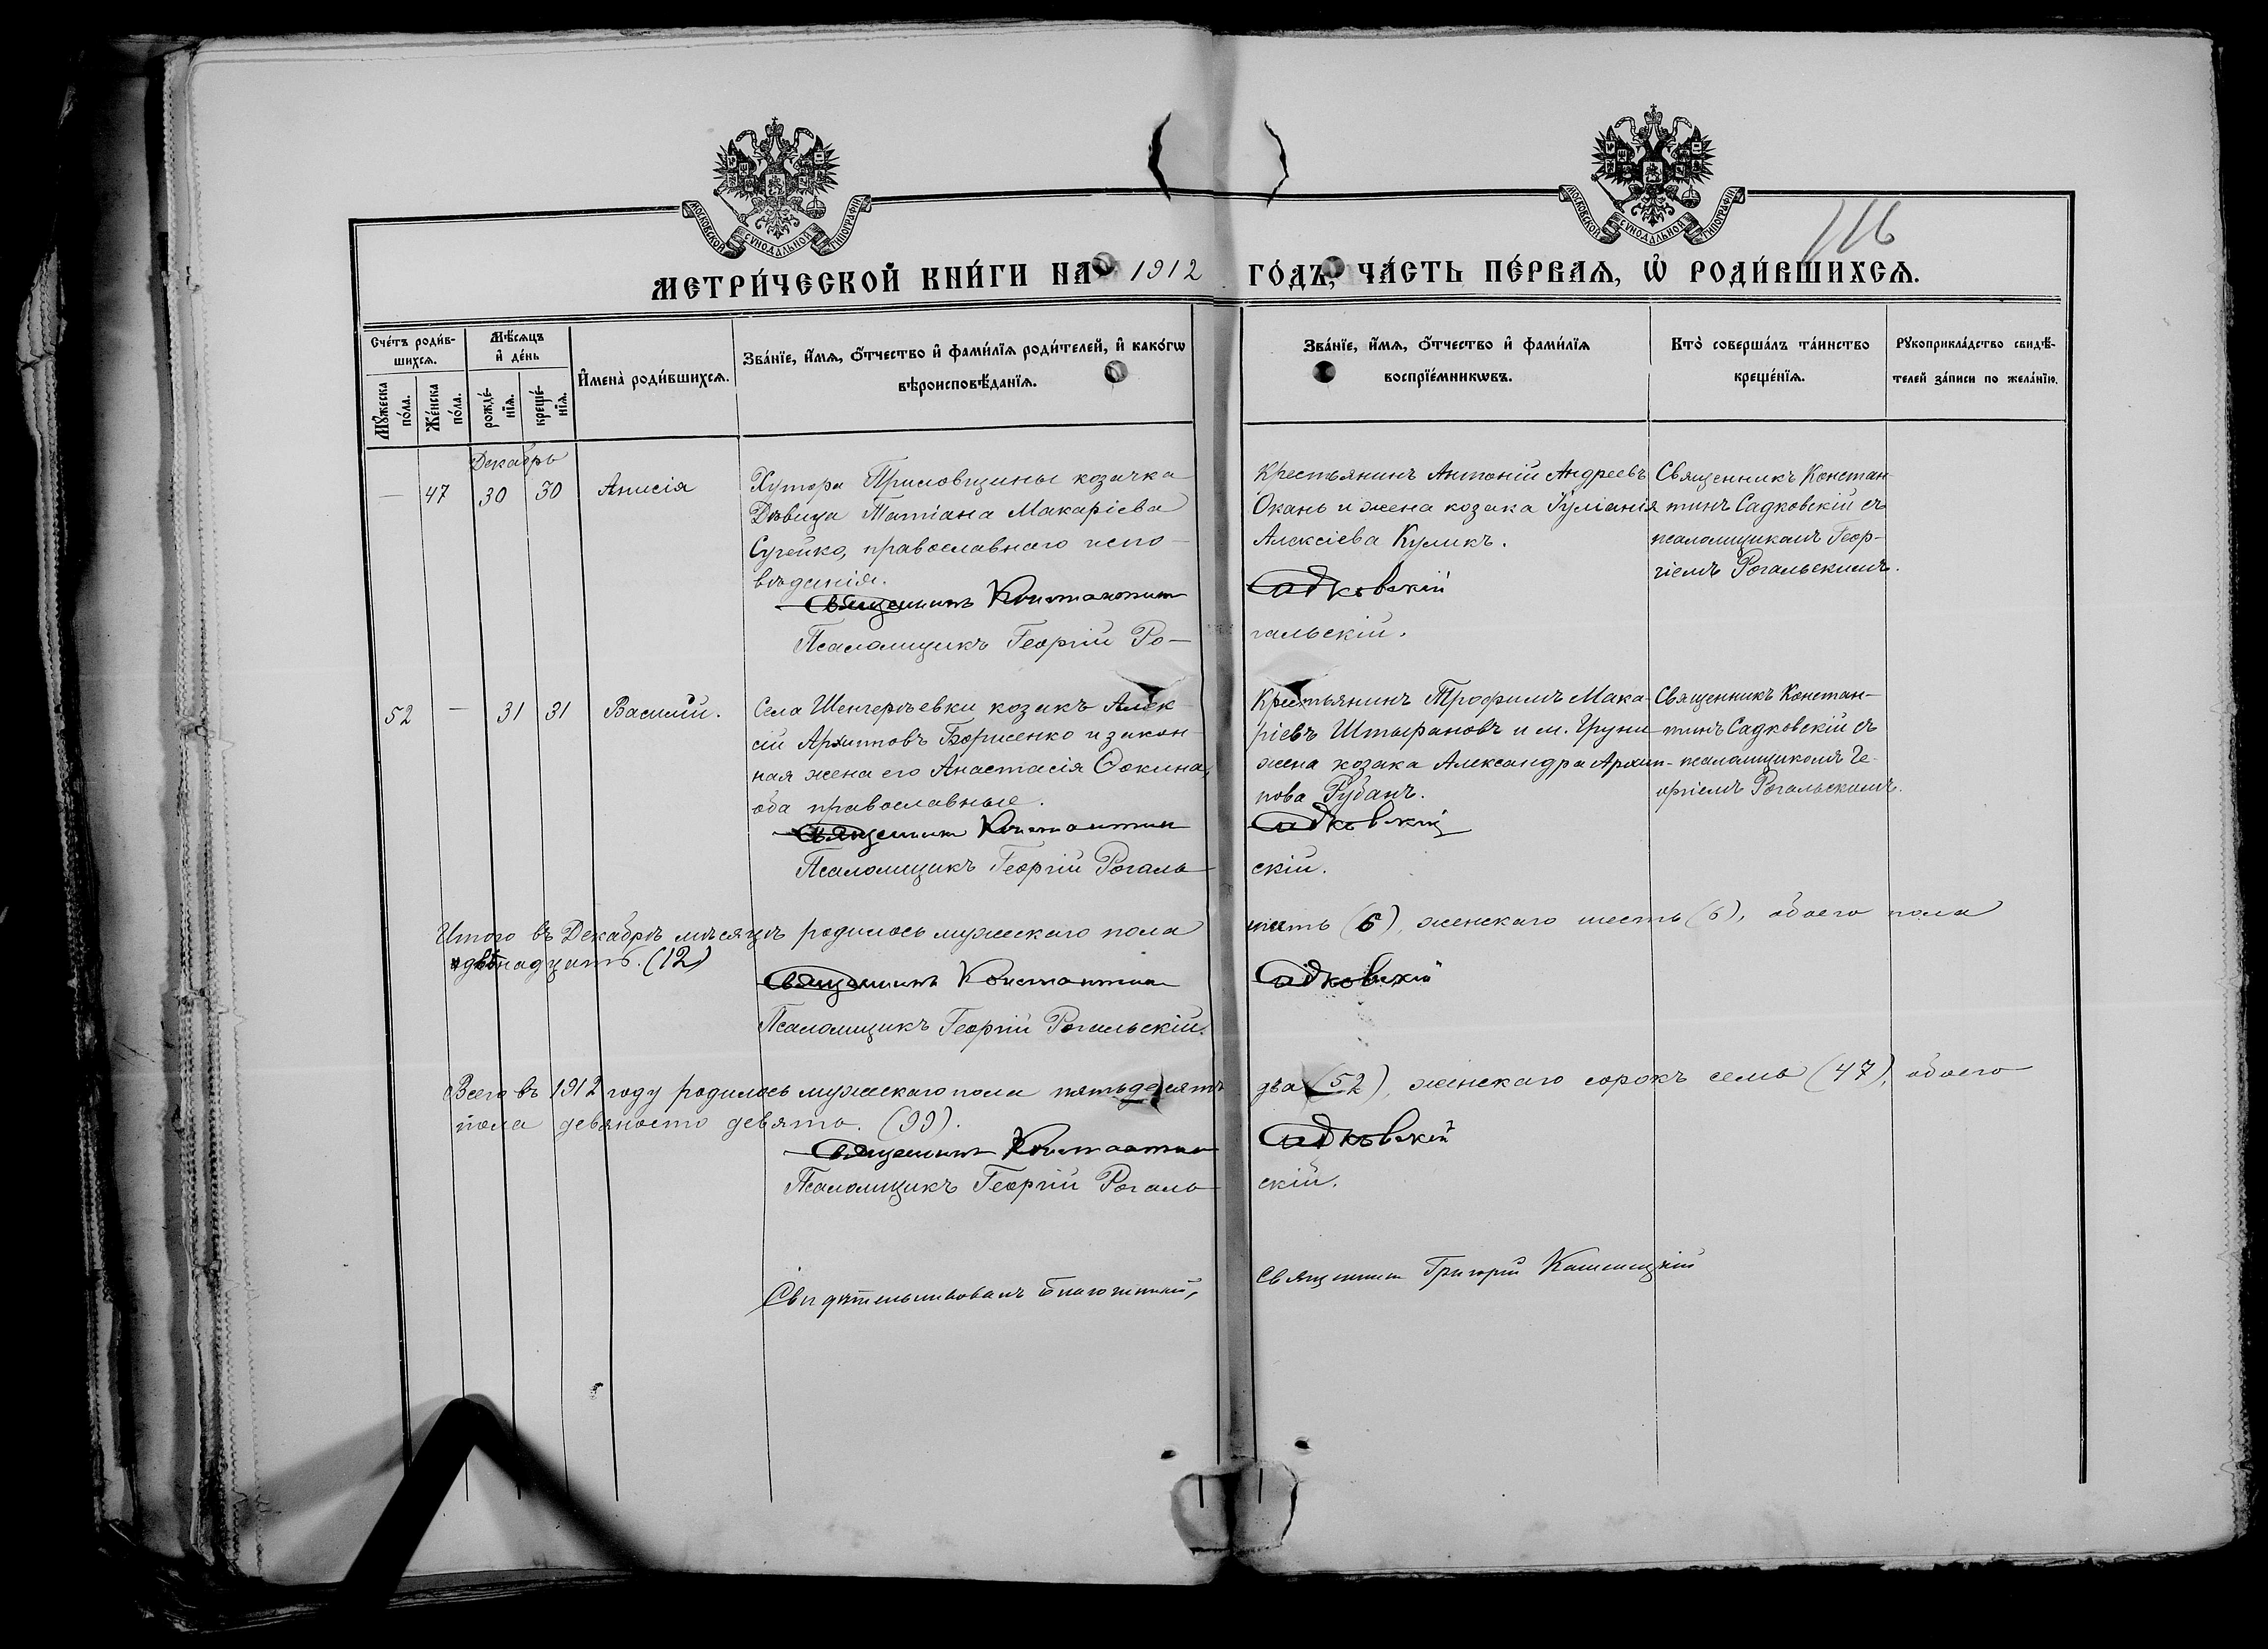 МОСКОВСКОЙ СѴНОДАЛЬНОЙ ТИПОГРАФІИ
МОСКОВСКОЙ СѴНОДАЛЬНОЙ ТИПОГРАФІИ
116
МЕТРИ́ЧЕСКОЙ КНИ́ГИ НА 1912 ГО́ДЪ, ЧА́СТЬ ПЕ́РВАѦ, Ѡ҆ РОДИ́ВШИХСѦ.
Сче́тъ роди́вшихсѧ.
Мꙋ́жеска по́ла.
Же́нска по́ла.
Мѣ́сѧцъ и҆ де́нь
рожде́нїѧ.
креще́нїѧ.
И҆мена̀ роди́вшихсѧ.
Зва́нїе, и҆́мѧ, ѻ҆́тчество и҆ фами́лїѧ роди́телей, и҆ како́гѡ
вѣроисповѣ́данїѧ.
Зва́нїе, и҆́мѧ, ѻ҆́тчество и҆ фами́лїѧ
воспрїе́мникѡвъ.
Кто̀ соверша́лъ та́инство
креще́нїѧ.
Рꙋкоприкла́дство свидѣ́-
телей за́писи по жела́нїю.
Декабрь
— 47 30 30 Анисія
Хутора Присовщины козачка
Дѣвица Татіана Макаріева
Сугейко, православнаго испо-
вѣданія.
Священникъ Константин Садковскій
Псаломщикъ Георгій Ро-гальскій.
Крестьянинъ Антоній Андреевъ
Окань и жена козака Іуліанія
Алексіева Куликъ.
Священникъ Констан-
тинъ Садковскій съ
псаломщикомъ Геор-
гіемъ Рогальскимъ.
52 — 31 31 Василій.
Села Шенгерѣевки козакъ Алек-
сій Архиповъ Борисенко и закон-
ная жена его Анастасія Фокина,
оба православные.
Священник Константин Садковскій
Псаломщикъ Георгій Рогаль-скій.
Крестьянинъ Трофимъ Мака-
ріевъ Штыфановъ и
жена козака Александра Архип-
пова Рубанъ.
Священникъ Констан-
тинъ Садковскій съ
псаломщикомъ Ге-
оргіемъ Рогальскимъ.
Итого въ Декабрѣ мѣсяцѣ родилось мужскаго пола шесть (6), женскаго шесть (6), обоего пола
двѣнадцать. (12)
Священникъ Константин Садковскій
Псаломщикъ Георгій Рогальскій.
Всего въ 1912 году родилось мужскаго пола пятьдесятъ два (52), женскаго сорокъ семь (47), обоего
пола девяносто девять. (99).
Священникъ Константин Садковскій
Псаломщикъ Георгій Рогаль-скій.
Свидѣтельствовалъ Благочинный, Священник Григорій